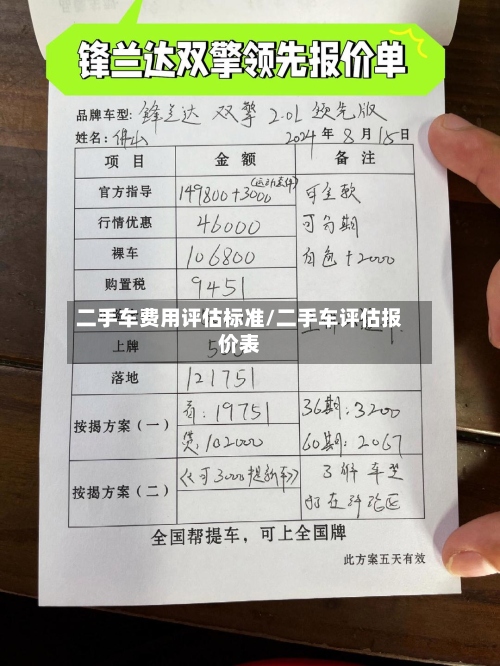 锋兰达双擎领先报价单
品牌车型: 锋兰达 双擎 2.0L 领先版
姓名: 佛山 2024 年 8 月 15 日
项 目 金 额 备 注
官方指导 149800+3000 (运动套件) 可全款
行情优惠 46000 可分期
裸车 106800 白色+2000
购置税 9451
二手车费用评估标准/二手车评估报
价表
上牌
落地 121751
按揭方案（一） 首: 19751 36期: 3200
贷: 102000 60期: 2067
按揭方案（二） 《可3000提新车》 了解车型
可在评论区
全国帮提车，可上全国牌
此方案五天有效